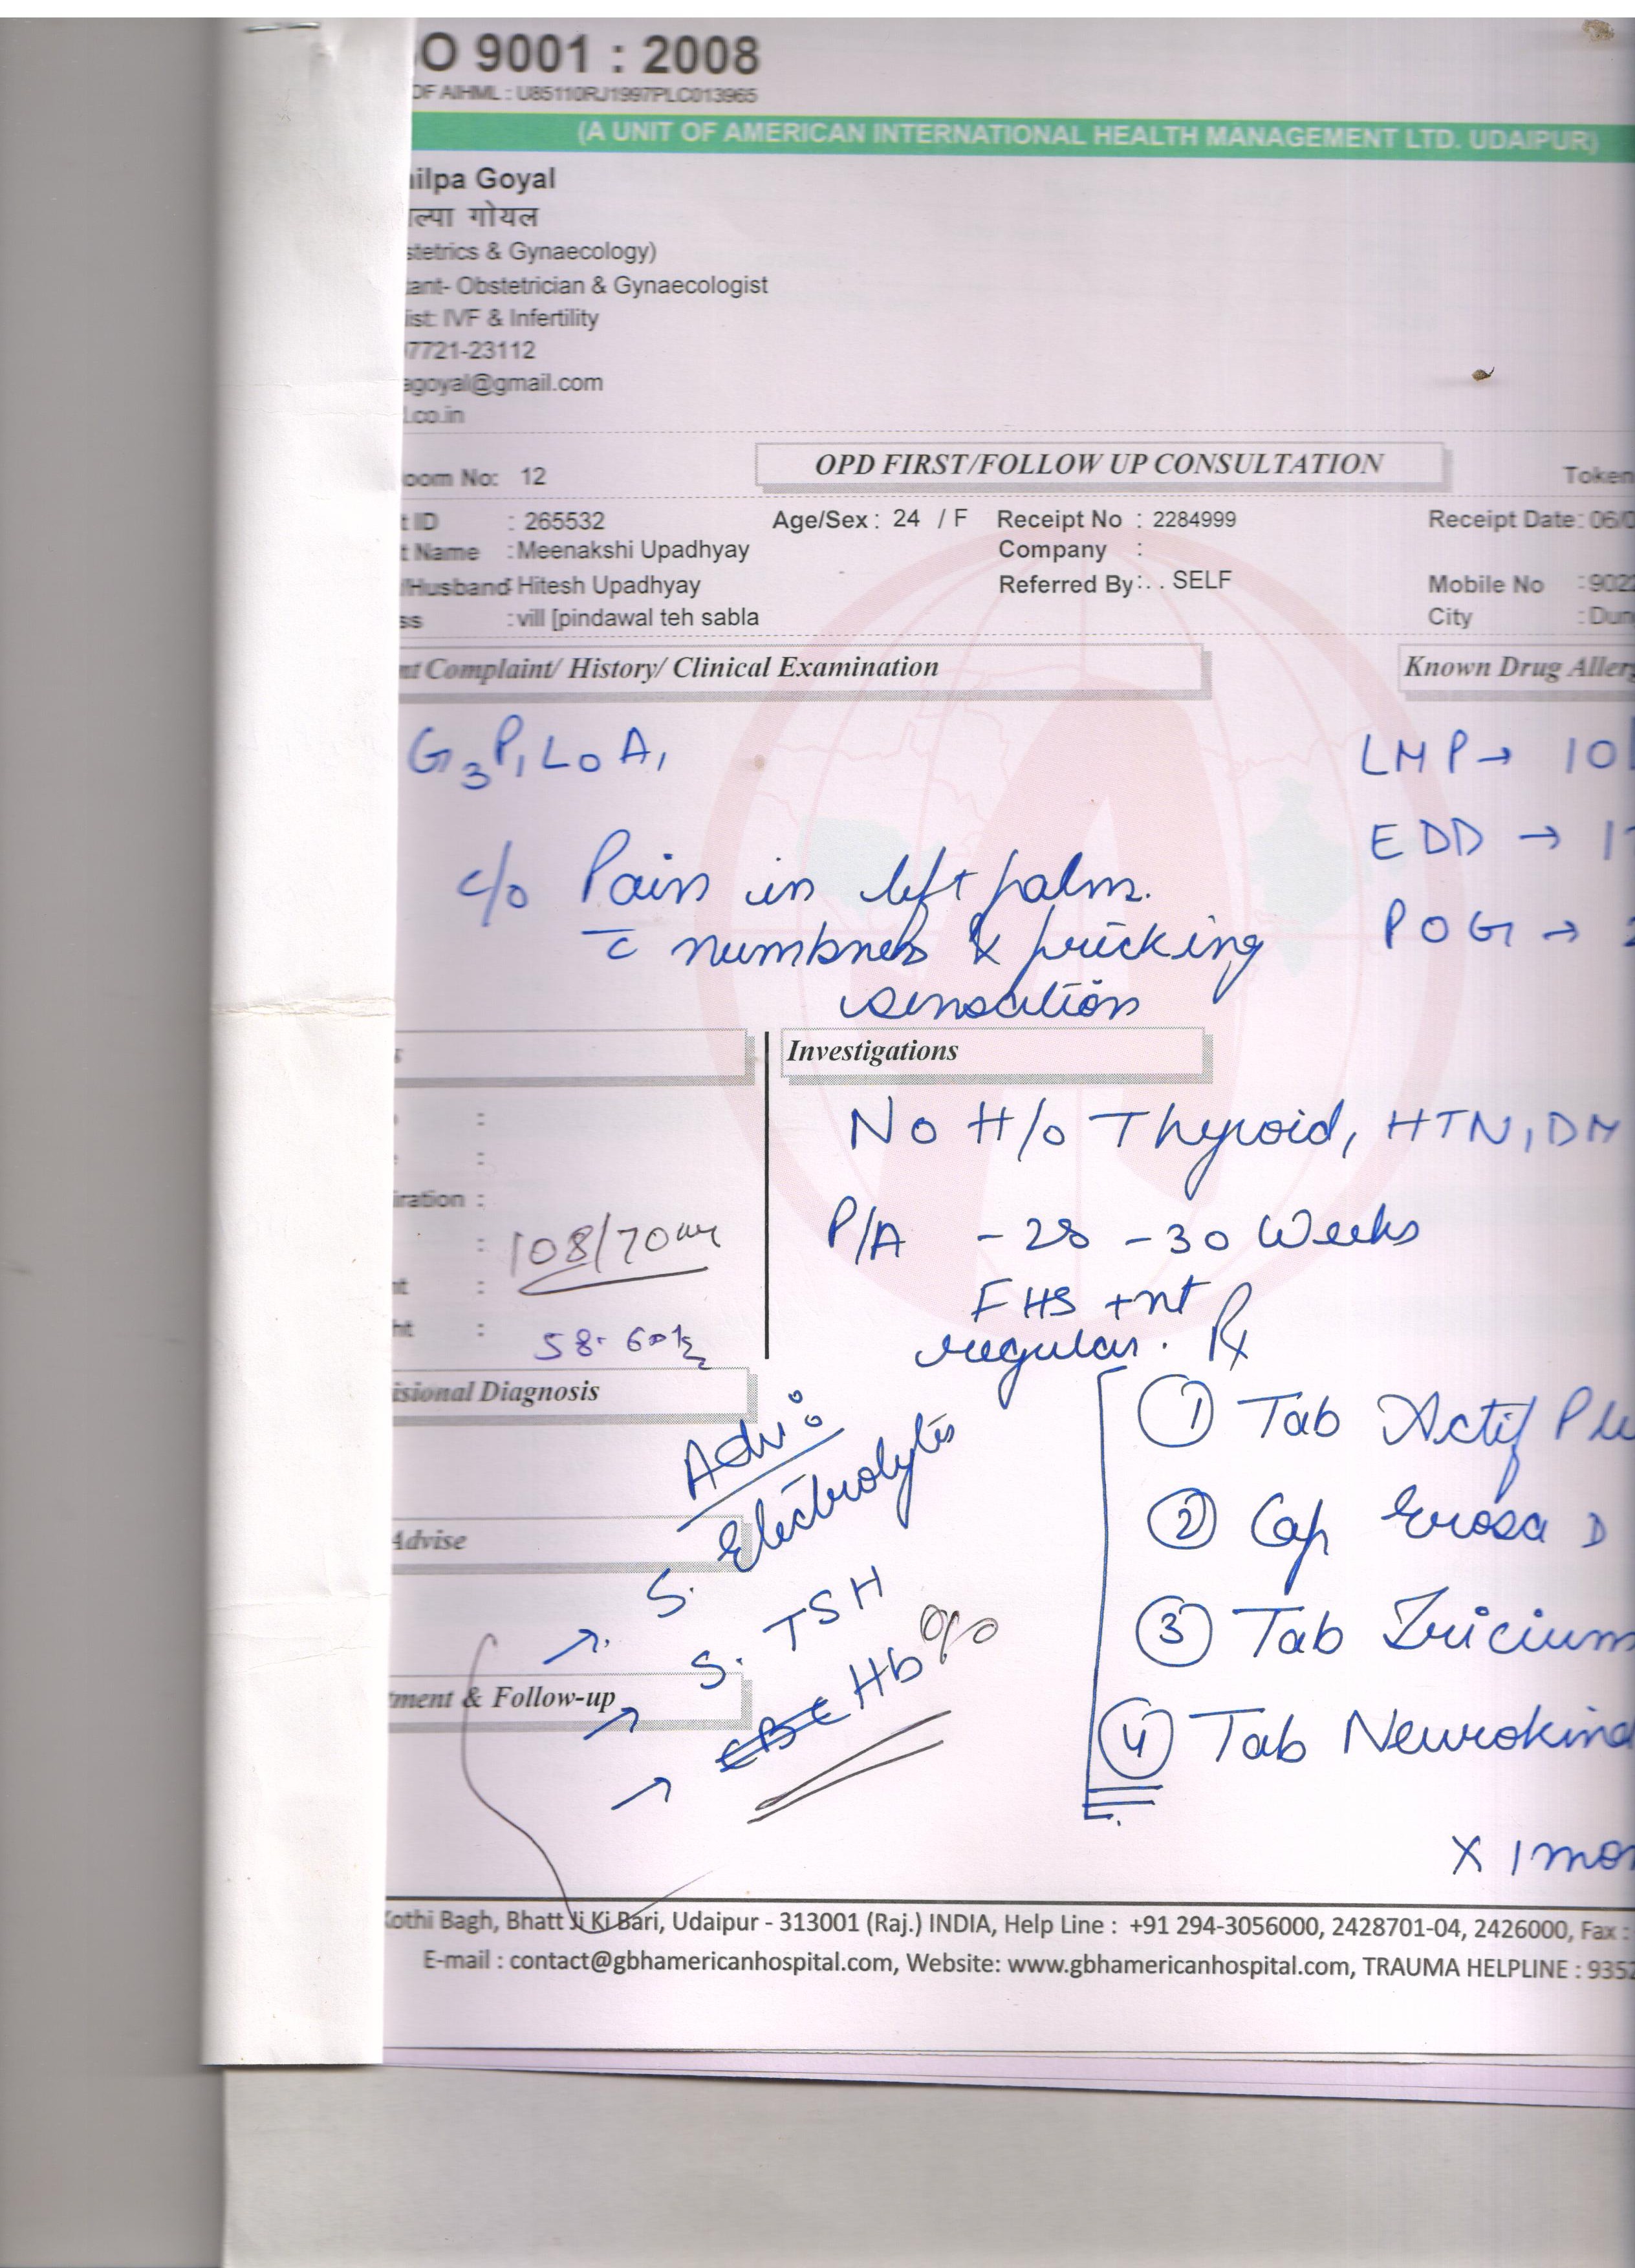 O 9001 : 2008
OF AIHML : U85110RJ1997PLC013965
(A UNIT OF AMERICAN INTERNATIONAL HEALTH MANAGEMENT LTD. UDAIPUR)
ilpa Goyal
ल्पा गोयल
stetrics & Gynaecology)
tant- Obstetrician & Gynaecologist
ist: IVF & Infertility
7721-23112
agoyal@gmail.com
.co.in
OPD FIRST/FOLLOW UP CONSULTATION
oom No: 12 Token
t ID : 265532 Age/Sex : 24 / F Receipt No : 2284999 Receipt Date : 06/0
t Name : Meenakshi Upadhyay Company :
/Husband : Hitesh Upadhyay Referred By : . . SELF Mobile No : 9022
ss : vill [pindawal teh sabla City : Dun
nt Complaint/ History/ Clinical Examination Known Drug Aller
G3P1L0A1 LMP → 10
EDD → 1
c/o Pain in left palm.
POG → 2
c̄ numbness & pricking
sensation
Investigations
:
:
iration :
: 108/70
t :
ht : 58.60
No H/o Thyroid, HTN, DM
P/A - 28 - 30 Weeks
FHS +nt
regular. Rx
isional Diagnosis
Adv:
→ S. Electrolytes
→ S. TSH
→ CBC Hb%
Advise
tment & Follow-up
① Tab Actif Plu
② Cap Erosa D
③ Tab Tricium
④ Tab Neurokind
x 1 mon
Kothi Bagh, Bhatt Ji Ki Bari, Udaipur - 313001 (Raj.) INDIA, Help Line : +91 294-3056000, 2428701-04, 2426000, Fax :
E-mail : contact@gbhamericanhospital.com, Website: www.gbhamericanhospital.com, TRAUMA HELPLINE : 9352